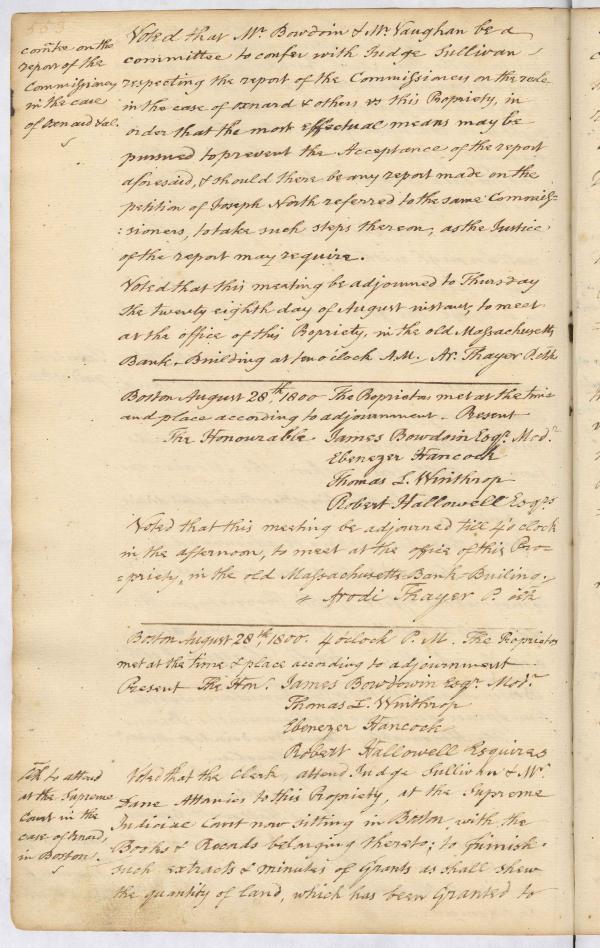 553
Voted that Mr. Bowdoin & Mr. Vaughan be a
comtee on the
report of the
Commissioners
in the case
of Oxnard & al.
committee to confer with Judge Sullivan
respecting the report of the Commissioners on the rule
in the case of Oxnard & others vs this Propriety, in
order that the most effectual means may be
pursued to prevent the Acceptance of the report
aforesaid, & should there be any report made on the
petition of Joseph North referred to the same Commis=
:sioners, to take such steps thereon, as the Justice
of the report may require.
Voted that this meeting be adjourned to Thursday
the twenty eighth day of August instant, to meet
at the office of this Propriety, in the old Massachusetts
Bank-Building at ten o'clock A.M. Ar. Thayer P. Clk
Boston August 28th, 1800 The Proprietors met at the time
and place according to adjournment. Present
The Honourable James Bowdoin Esqr. Modr.
Ebenezer Hancock
Thomas L. Winthrop
Robert Hallowell Esqrs
Voted that this meeting be adjourned till 4 o'clock
in the afternoon, to meet at the office of this Pro=
=priety, in the old Massachusetts Bank-Builing.
Arodi Thayer P. Clk
Boston August 28th, 1800. 4 oclock P.M. The Proprietors
met at the time & place according to adjournment
Present The Honl. James Bowdowin Esqr. Modr.
Thomas L. Winthrop
Ebenezer Hancock
Robert Hallowell Esquires
Clk to attend
at the Supreme
Court in the
case of Oxnard,
in Boston.
Voted that the Clerk, attend Judge Sullivan & Mr.
Dane Attonies to this Propriety, at the Supreme
Judiciae Court now sitting in Boston, with the
Books & Records belonging thereto; to furnish
such extracts & minutes of Grants as shall shew
the quantity of land, which has been Granted to